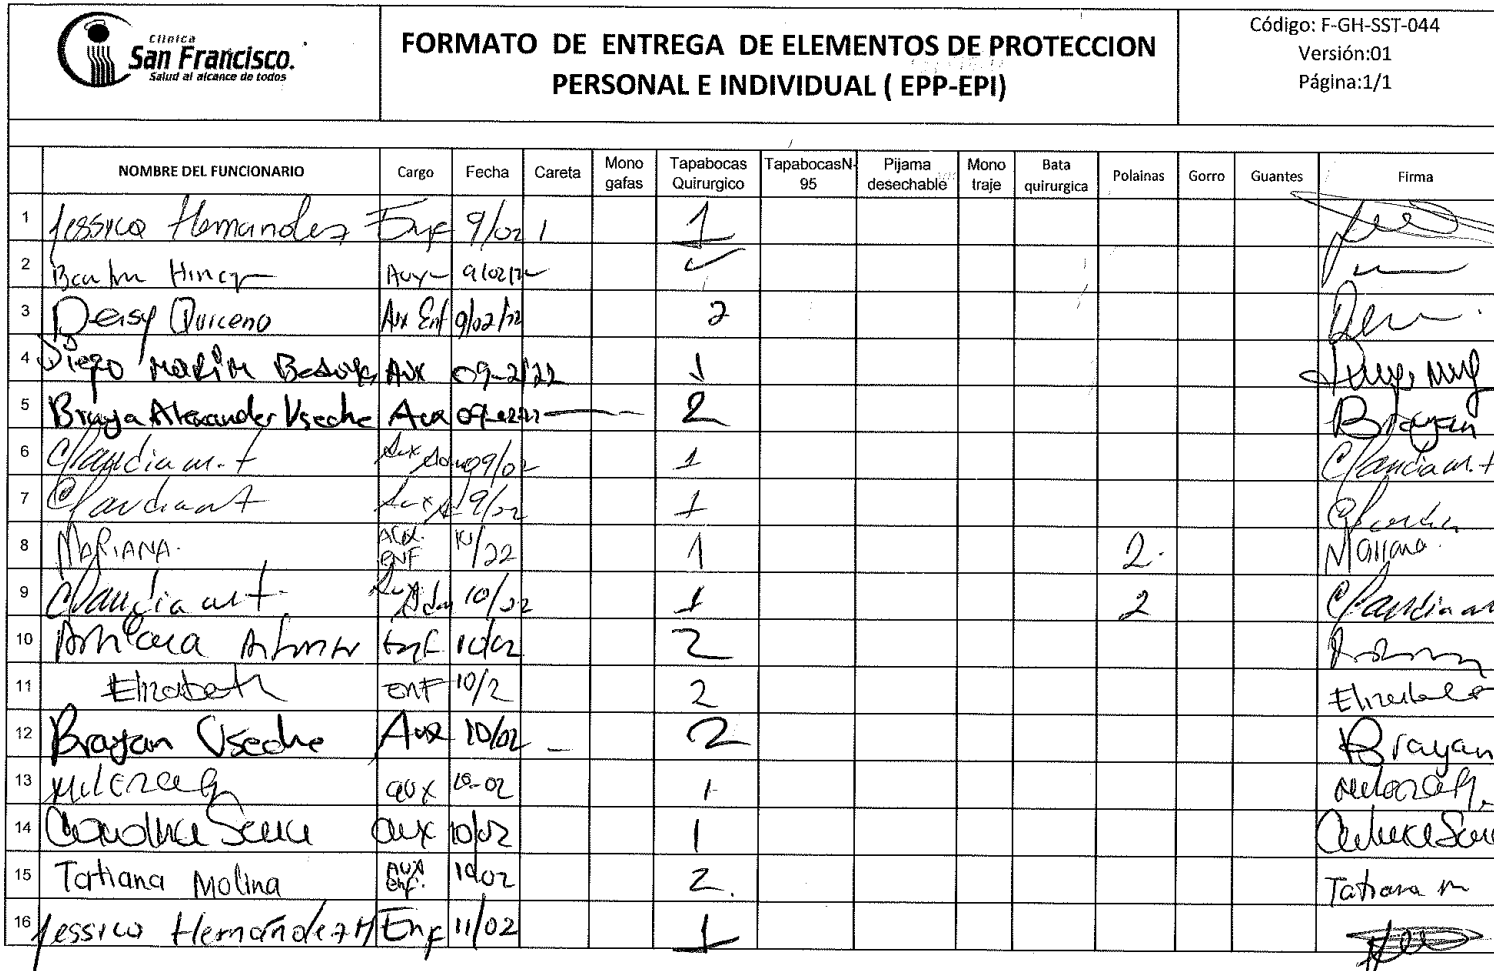 Clínica
San Francisco.
Salud al alcance de todos
FORMATO DE ENTREGA DE ELEMENTOS DE PROTECCION
PERSONAL E INDIVIDUAL ( EPP-EPI)
Código: F-GH-SST-044
Versión:01
Página:1/1
NOMBRE DEL FUNCIONARIO Cargo Fecha Careta Mono gafas Tapabocas Quirurgico TapabocasN-95 Pijama desechable Mono traje Bata quirurgica Polainas Gorro Guantes Firma
1 Jessica Hernandez Enf 9/02 1 1
2 Aux 9/02/22
3 Deisy Quiceno Aux Enf 9/02/22 2
4 Diego Marin Bedoya Aux 09-2/22 1
5 Braya Alexander Useche Aux 2 Brayan
6 Claudia m.t Aux Adm 09/02 1 Claudia m.t
7 Claudia mt Aux A 9/22 1 Claudia
8 MARIANA. AUX. ENF 10/22 1 2. Mariana.
9 Claudia mt Aux Adm 10/22 1 2 Claudia m
10 Enf 10/02 2
11 Elizabeth ENF 10/2 2 Elizabeth
12 Brayan Useche Aux 10/02 2 Brayan
13 Milena G aux 10-02 1 Milena G.
14 Carolina Serna aux 10/02 1
15 Tatiana Molina AUX enf. 10/02 2. Tatiana m
16 Jessica Hernández H Enf 11/02 1